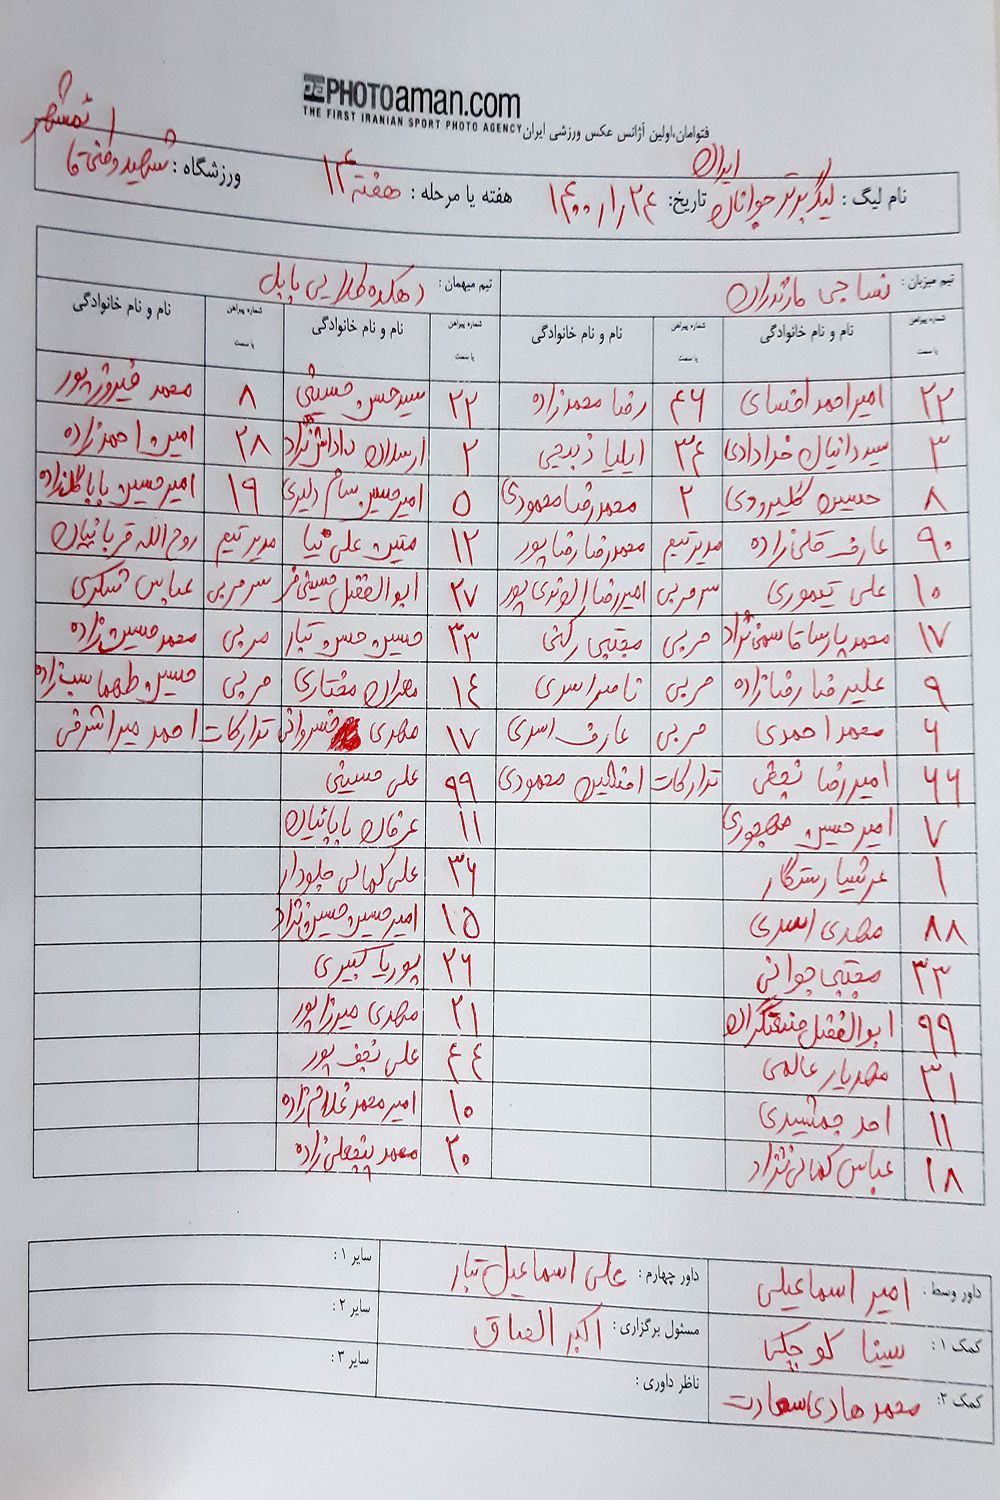 PHOTOaman.com
THE FIRST IRANIAN SPORT PHOTO AGENCY
فتوامان،اولین آژانس عکس ورزشی ایران
نام لیگ : لیگ برتر جوانان ایران تاریخ: ۱۴۰۰٫۱٫۲۴ هفته یا مرحله : هفته ۱۴ ورزشگاه : شهید وطنی قائمشهر
تیم میزبان : نساجی مازندران تیم میهمان : دهکده طلایی بابل
شماره پیراهن یا سمت نام و نام خانوادگی شماره پیراهن یا سمت نام و نام خانوادگی شماره پیراهن یا سمت نام و نام خانوادگی شماره پیراهن یا سمت نام و نام خانوادگی
۲۲ امیراحمد افسای ۴۶ رضا محمدزاده ۲۲ سیدحسن حسینی ۸ محمد فیروزپور
۳ سیددانیال خدادادی ۳۴ ایلیا ذبیحی ۲ ارسلان داداش نژاد ۲۸ امین احمدزاده
۸ حسین گلیرودی ۲ محمدرضا محمودی ۵ امیرحسین سام دلیری ۱۹ امیرحسین باباگل زاده
۹۰ عارف قلی زاده مدیر تیم محمدرضا رضاپور ۱۲ متین علی نیا مدیر تیم روح الله قربانیان
۱۰ علی تیموری سرمربی امیررضا الوندی پور ۲۷ ابوالفضل حسینی فر سرمربی عباس شکری
۱۷ محمدپارسا قاسمی نژاد مربی مجتبی رکنی ۳۳ حسین حسن تبار مربی محمد حسین زاده
۹ علیرضا رضازاده مربی ناصر اسدی ۱۴ مهران مختاری مربی حسین طهماسب زاده
۶ محمد احمدی مربی عارف اسدی ۱۷ مهدی خسروانی تدارکات احمد میراشرفی
۶۶ امیررضا نجفی تدارکات محمودی ۹۹ علی حسینی
۷ امیرحسین مهجوری ۱۱ عرفان بابائیان
۱ عرشیا رستگار ۳۶ علی کمالی چلودار
۸۸ مهدی اسدی ۱۵ امیرحسین حسین نژاد
۳۳ مجتبی جوانی ۲۶ پوریا کبیری
۹۹ ابوالفضل صنعتگران ۲۱ مهدی میرزاپور
۳۱ مهدیار عالمی ۴۴ علی نجف پور
۱۱ احد جمشیدی ۱۰ امیرمحمد غلام زاده
۱۸ عباس کمالی نژاد ۲۰ محمد پنجعلی زاده
داور وسط : امیر اسماعیلی داور چهارم : علی اسماعیل تبار سایر ۱ :
کمک ۱ : سینا کوچکی مسئول برگزاری : اکبر الصاق سایر ۲ :
کمک ۲: محمدهادی سعادت ناظر داوری : سایر ۳ :